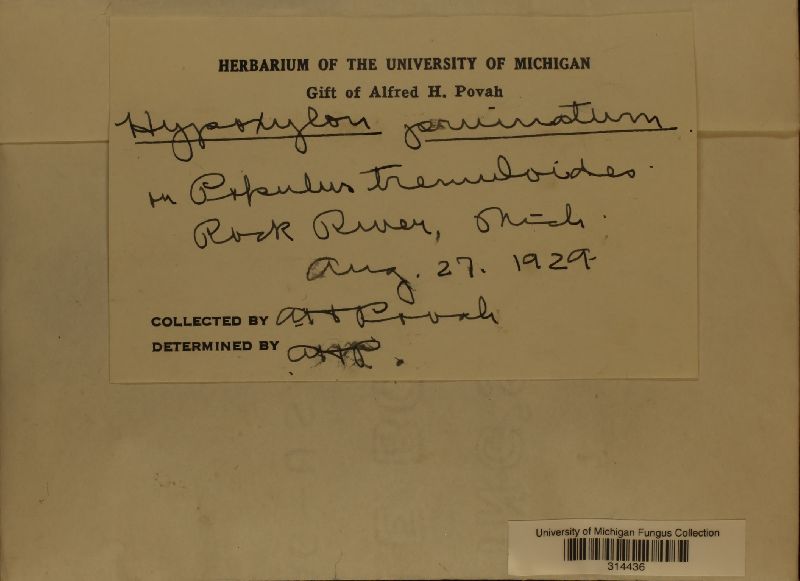 HERBARIUM OF THE UNIVERSITY OF MICHIGAN
Gift of Alfred H. Povah
Hypoxylon pruinatum
on Populus tremuloides.
Rock River, Mich.
Aug. 27. 1929
COLLECTED BY AH Povah
DETERMINED BY AHP.
University of Michigan Fungus Collection
314436